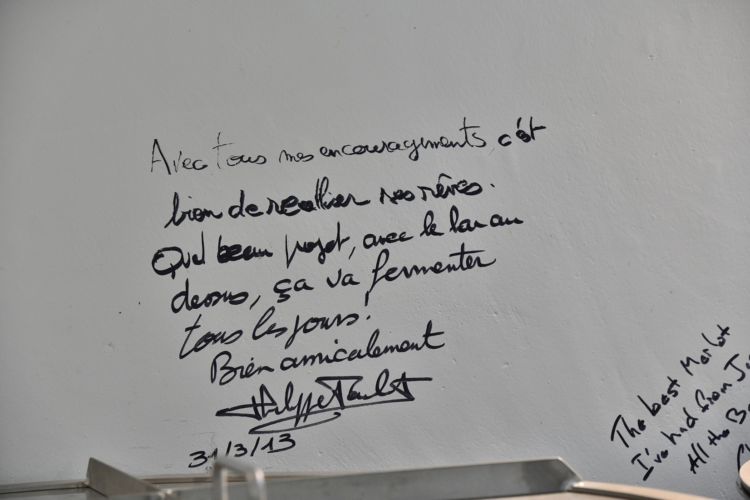 Avec tous mes encouragements, c'est
bien de realiser ses rêves.
Quel beau projet, avec le bar au
dessus, ça va fermenter
tous les jours!
Bien amicalement
31/3/13
The best Merlot
I've had from
All the